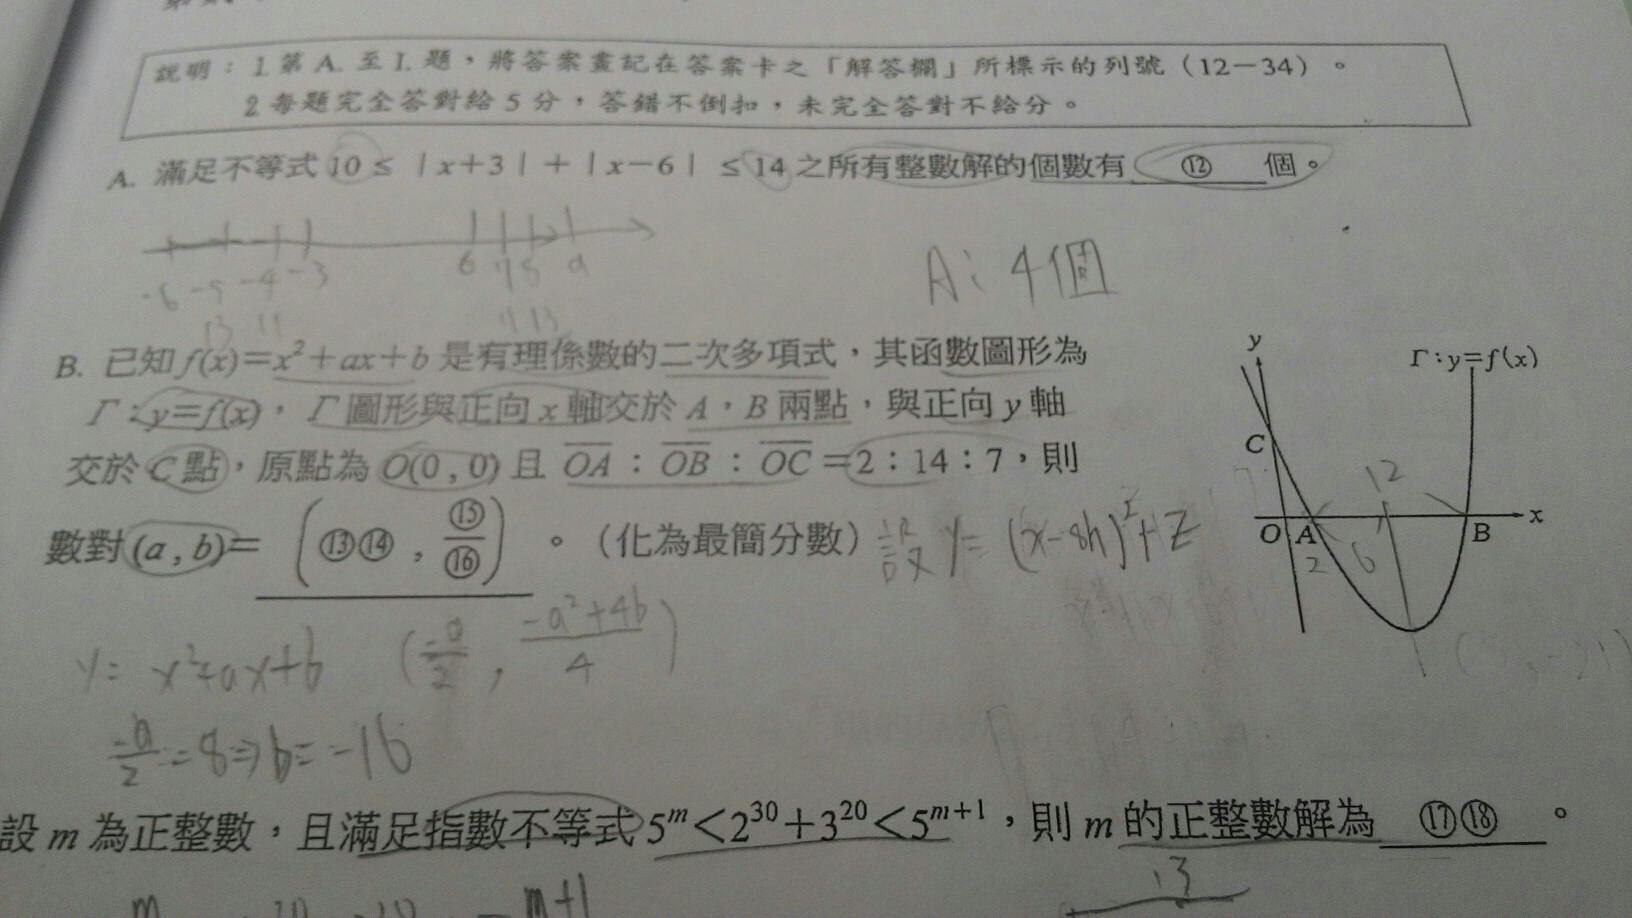 說明：1.第 A. 至 I. 題，將答案畫記在答案卡之「解答欄」所標示的列號（12－34）。
2.每題完全答對給 5 分，答錯不倒扣，未完全答對不給分。
A. 滿足不等式 10 ≤ |x+3|+|x−6| ≤ 14 之所有整數解的個數有 ⑫ 個。
-6 -5 -4 -3 6 7 8 9
13 11 11 13
A: 4個
B. 已知 f(x)=x²+ax+b 是有理係數的二次多項式，其函數圖形為
Γ：y=f(x)，Γ 圖形與正向 x 軸交於 A，B 兩點，與正向 y 軸
交於 C 點，原點為 O(0,0) 且 OA：OB：OC＝2：14：7，則
數對 (a,b)= (⑬⑭, ⑮/⑯)。（化為最簡分數）
設 y= (x-8h)²+z
y
Γ:y=f(x)
C
12
O A B x
2 6
y= x²+ax+b (-a/2, -a²+4b/4)
-a/2=8⇒b=-16
設 m 為正整數，且滿足指數不等式 5^m<2^30+3^20<5^(m+1)，則 m 的正整數解為 ⑰⑱。
13
m+1